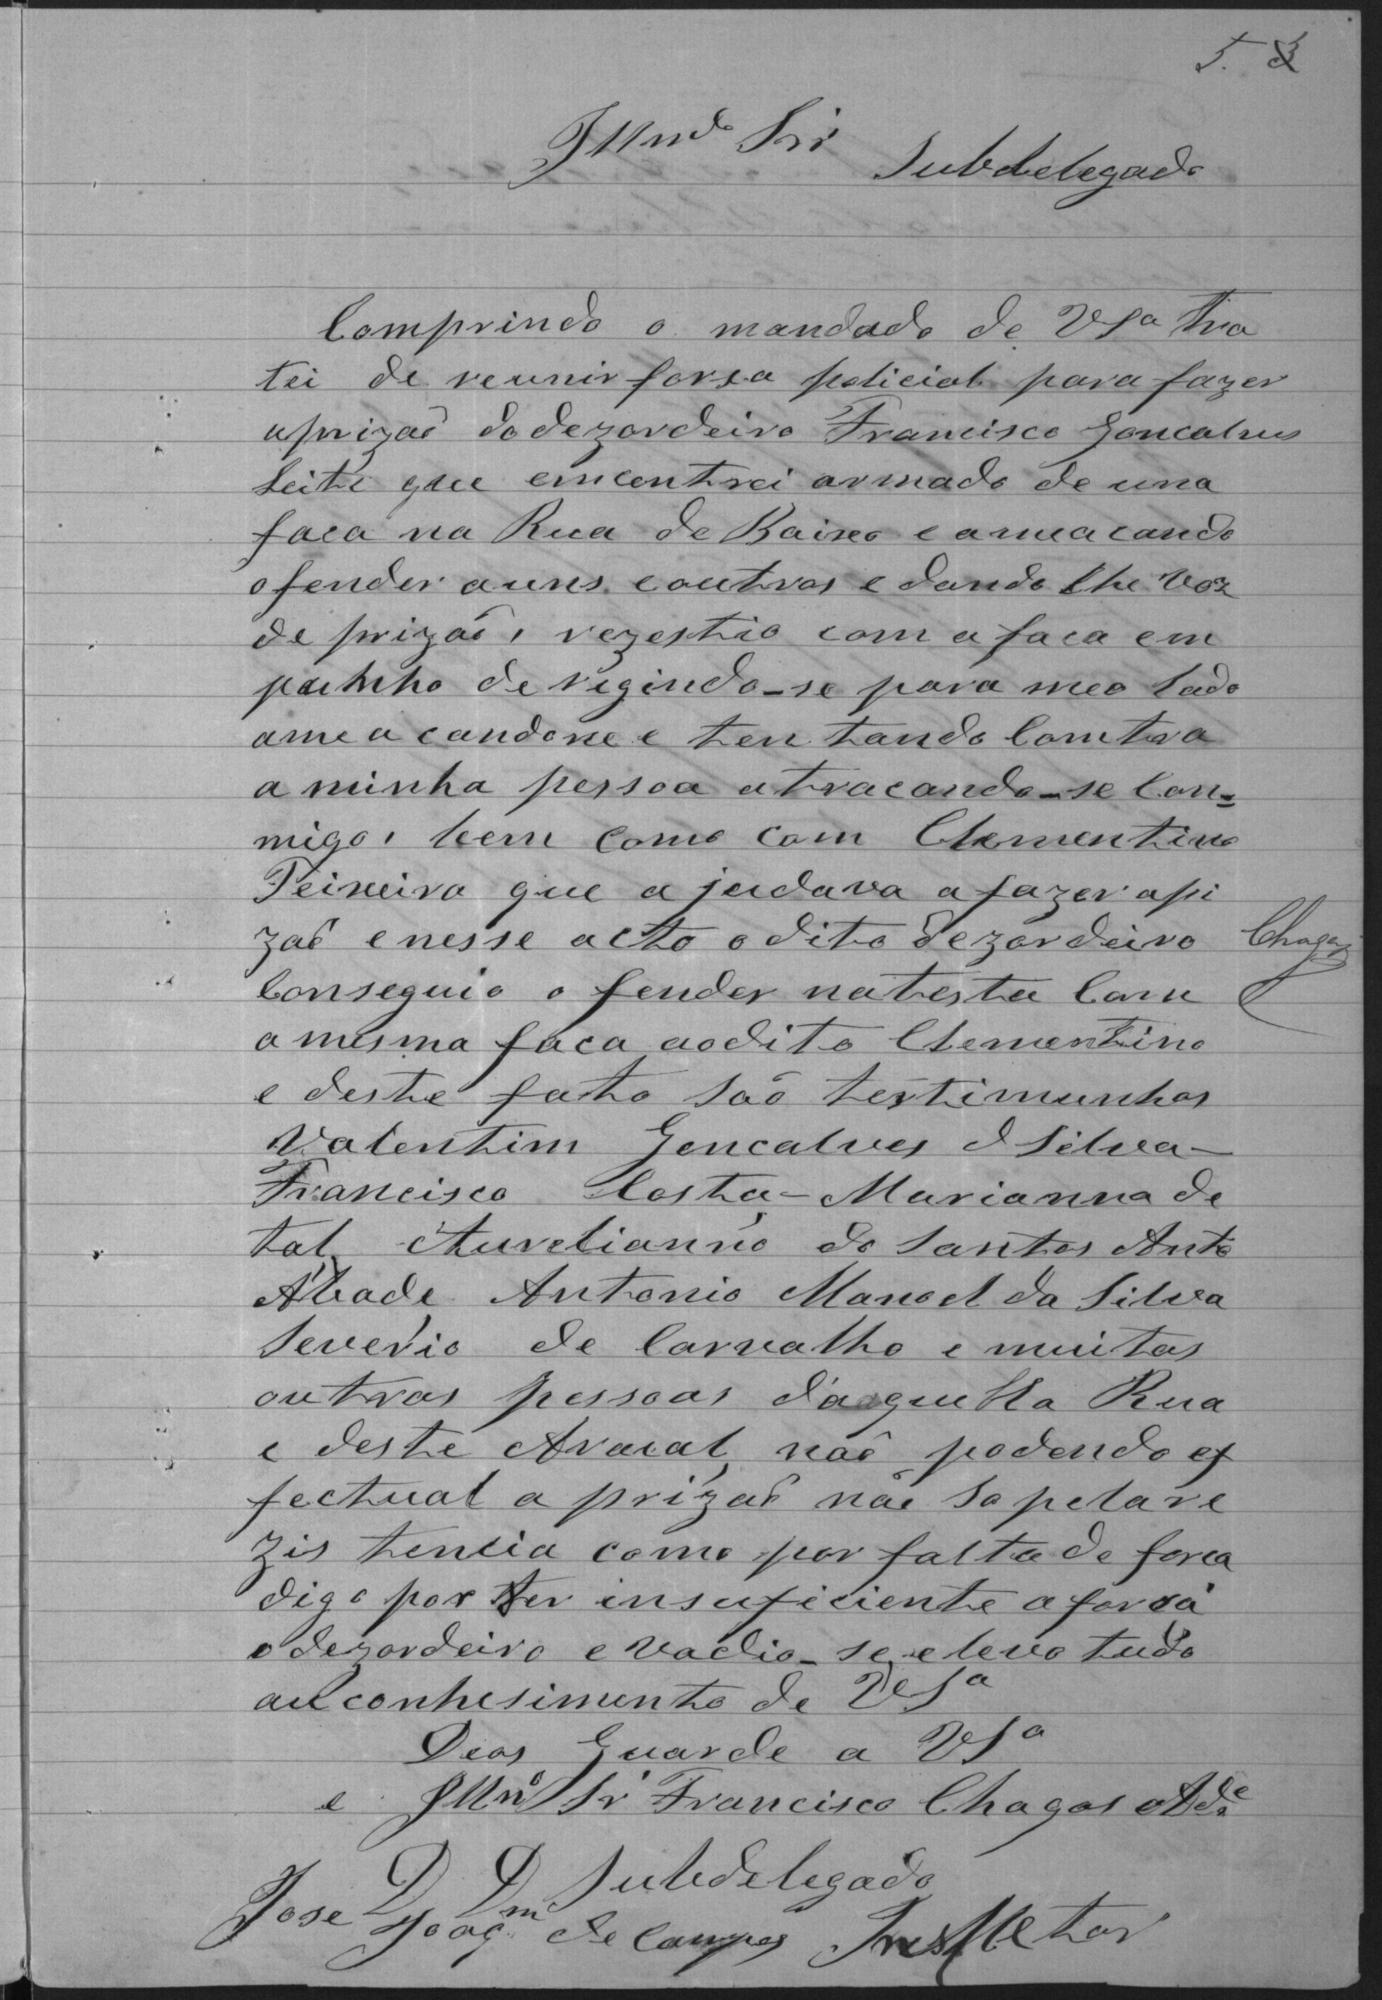 5. 3
Illmo Snr
Subdelegado
Comprindo o mandado de VSa tra
tei de reunir forsa policial para fazer
aprizaõ do dezordeiro Francisco Goncalves
Leite que emcontrei armado de una
faca na Rua de Baixo e ameacando
ofender auns e outros e dando lhe voz
de prizaõ, rezestio com a faca em
punho derigindo-se para meo lado
ameacandome e tentando Comtra
a minha pessoa atracando-se Con=
migo, bem como com Clementino
Teixeira que ajudava afazer api
zaõ e nesse acto o dito dezordeiro
Chagas
Conseguio ofender natesta Com
a mesma faca aodito Clementino
e deste fato saõ testimunhas
Valentim Goncalves dSilva-
Francisco Costa- Marianna de
tal, Aurelianno do Santos Anto
Abade Antonio Manoel da Silva
Severio de Carvalho e muitas
outras pessoas d'aquella Rua
e deste Araial, naõ podendo ef
fectual a prizaõ naõ so pelare
zistencia como por falta de forca
digo por ser insuficiente aforca
odezordeiro evadio-se, e levo tudo
au conhesimento de VSa
Deos Guarde a VSa
e Illmo Sr Francisco Chagas Ade
D D Subdelegado
Jose Joaqm de Campos Inspector